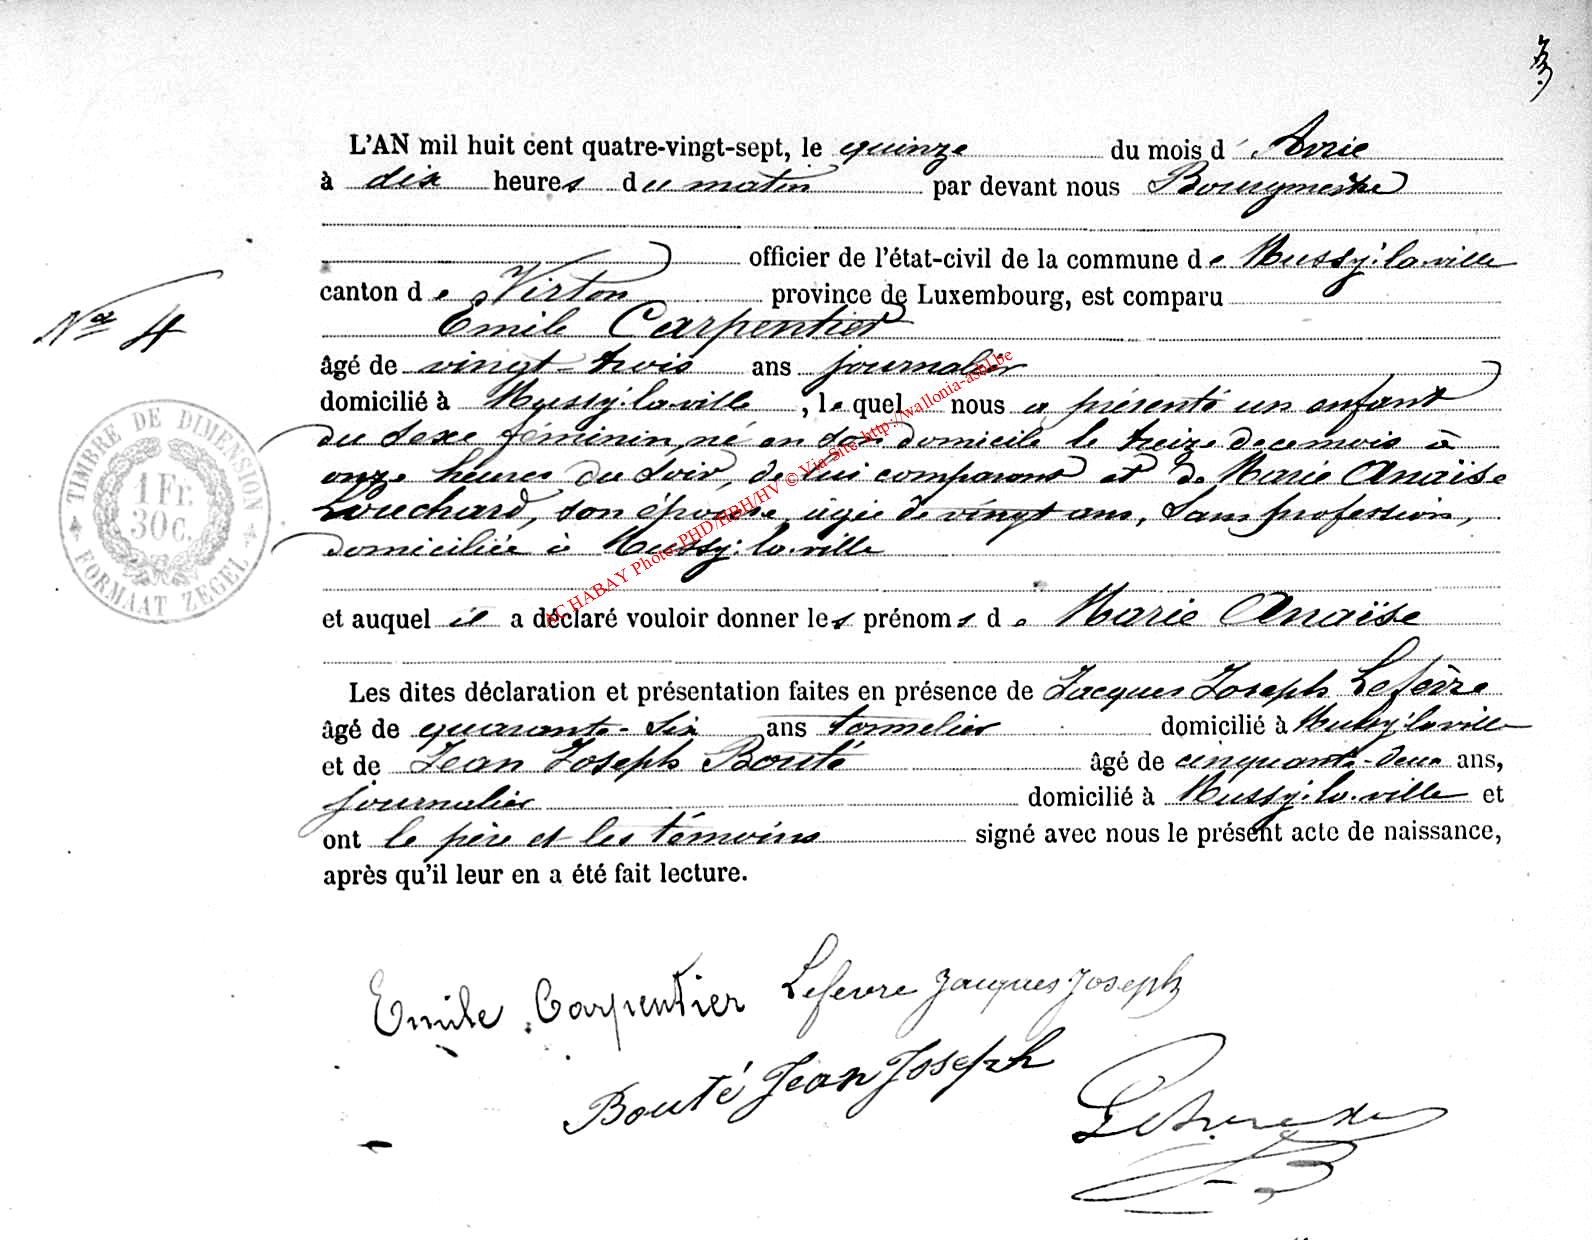 L'AN mil huit cent quatre-vingt-sept, le quinze du mois d'Avril
à dix heures du matin par devant nous Bourgmestre
officier de l'état-civil de la commune de Mussy-la-ville
canton de Virton province de Luxembourg, est comparu
Emile Carpentier
N° 4
âgé de vingt-trois ans journalier
domicilié à Mussy-la-ville, le quel nous a présenté un enfant
du sexe féminin, né en son domicile le treize de ce mois à
onze heures du soir, de lui comparant et de Marie Anaïse
Louchard, son épouse, âgée de vingt ans, sans profession,
domiciliée à Mussy-la-ville
TIMBRE DE DIMENSION
1 Fr.
30 C.
FORMAAT ZEGEL
AC HABAY Photo: PHD/HBH/HV © Via Site http://wallonia-asbl.be
et auquel il a déclaré vouloir donner les prénoms de Marie Anaïse
Les dites déclaration et présentation faites en présence de Jacques Joseph Lefèvre
âgé de quarante-six ans tonnelier domicilié à Mussy-la-ville
et de Jean Joseph Bouté âgé de cinquante-deux ans,
journalier domicilié à Mussy-la-ville et
ont le père et les témoins signé avec nous le présent acte de naissance,
après qu'il leur en a été fait lecture.
Emile Carpentier Lefevre Jacques Joseph
Bouté Jean Joseph